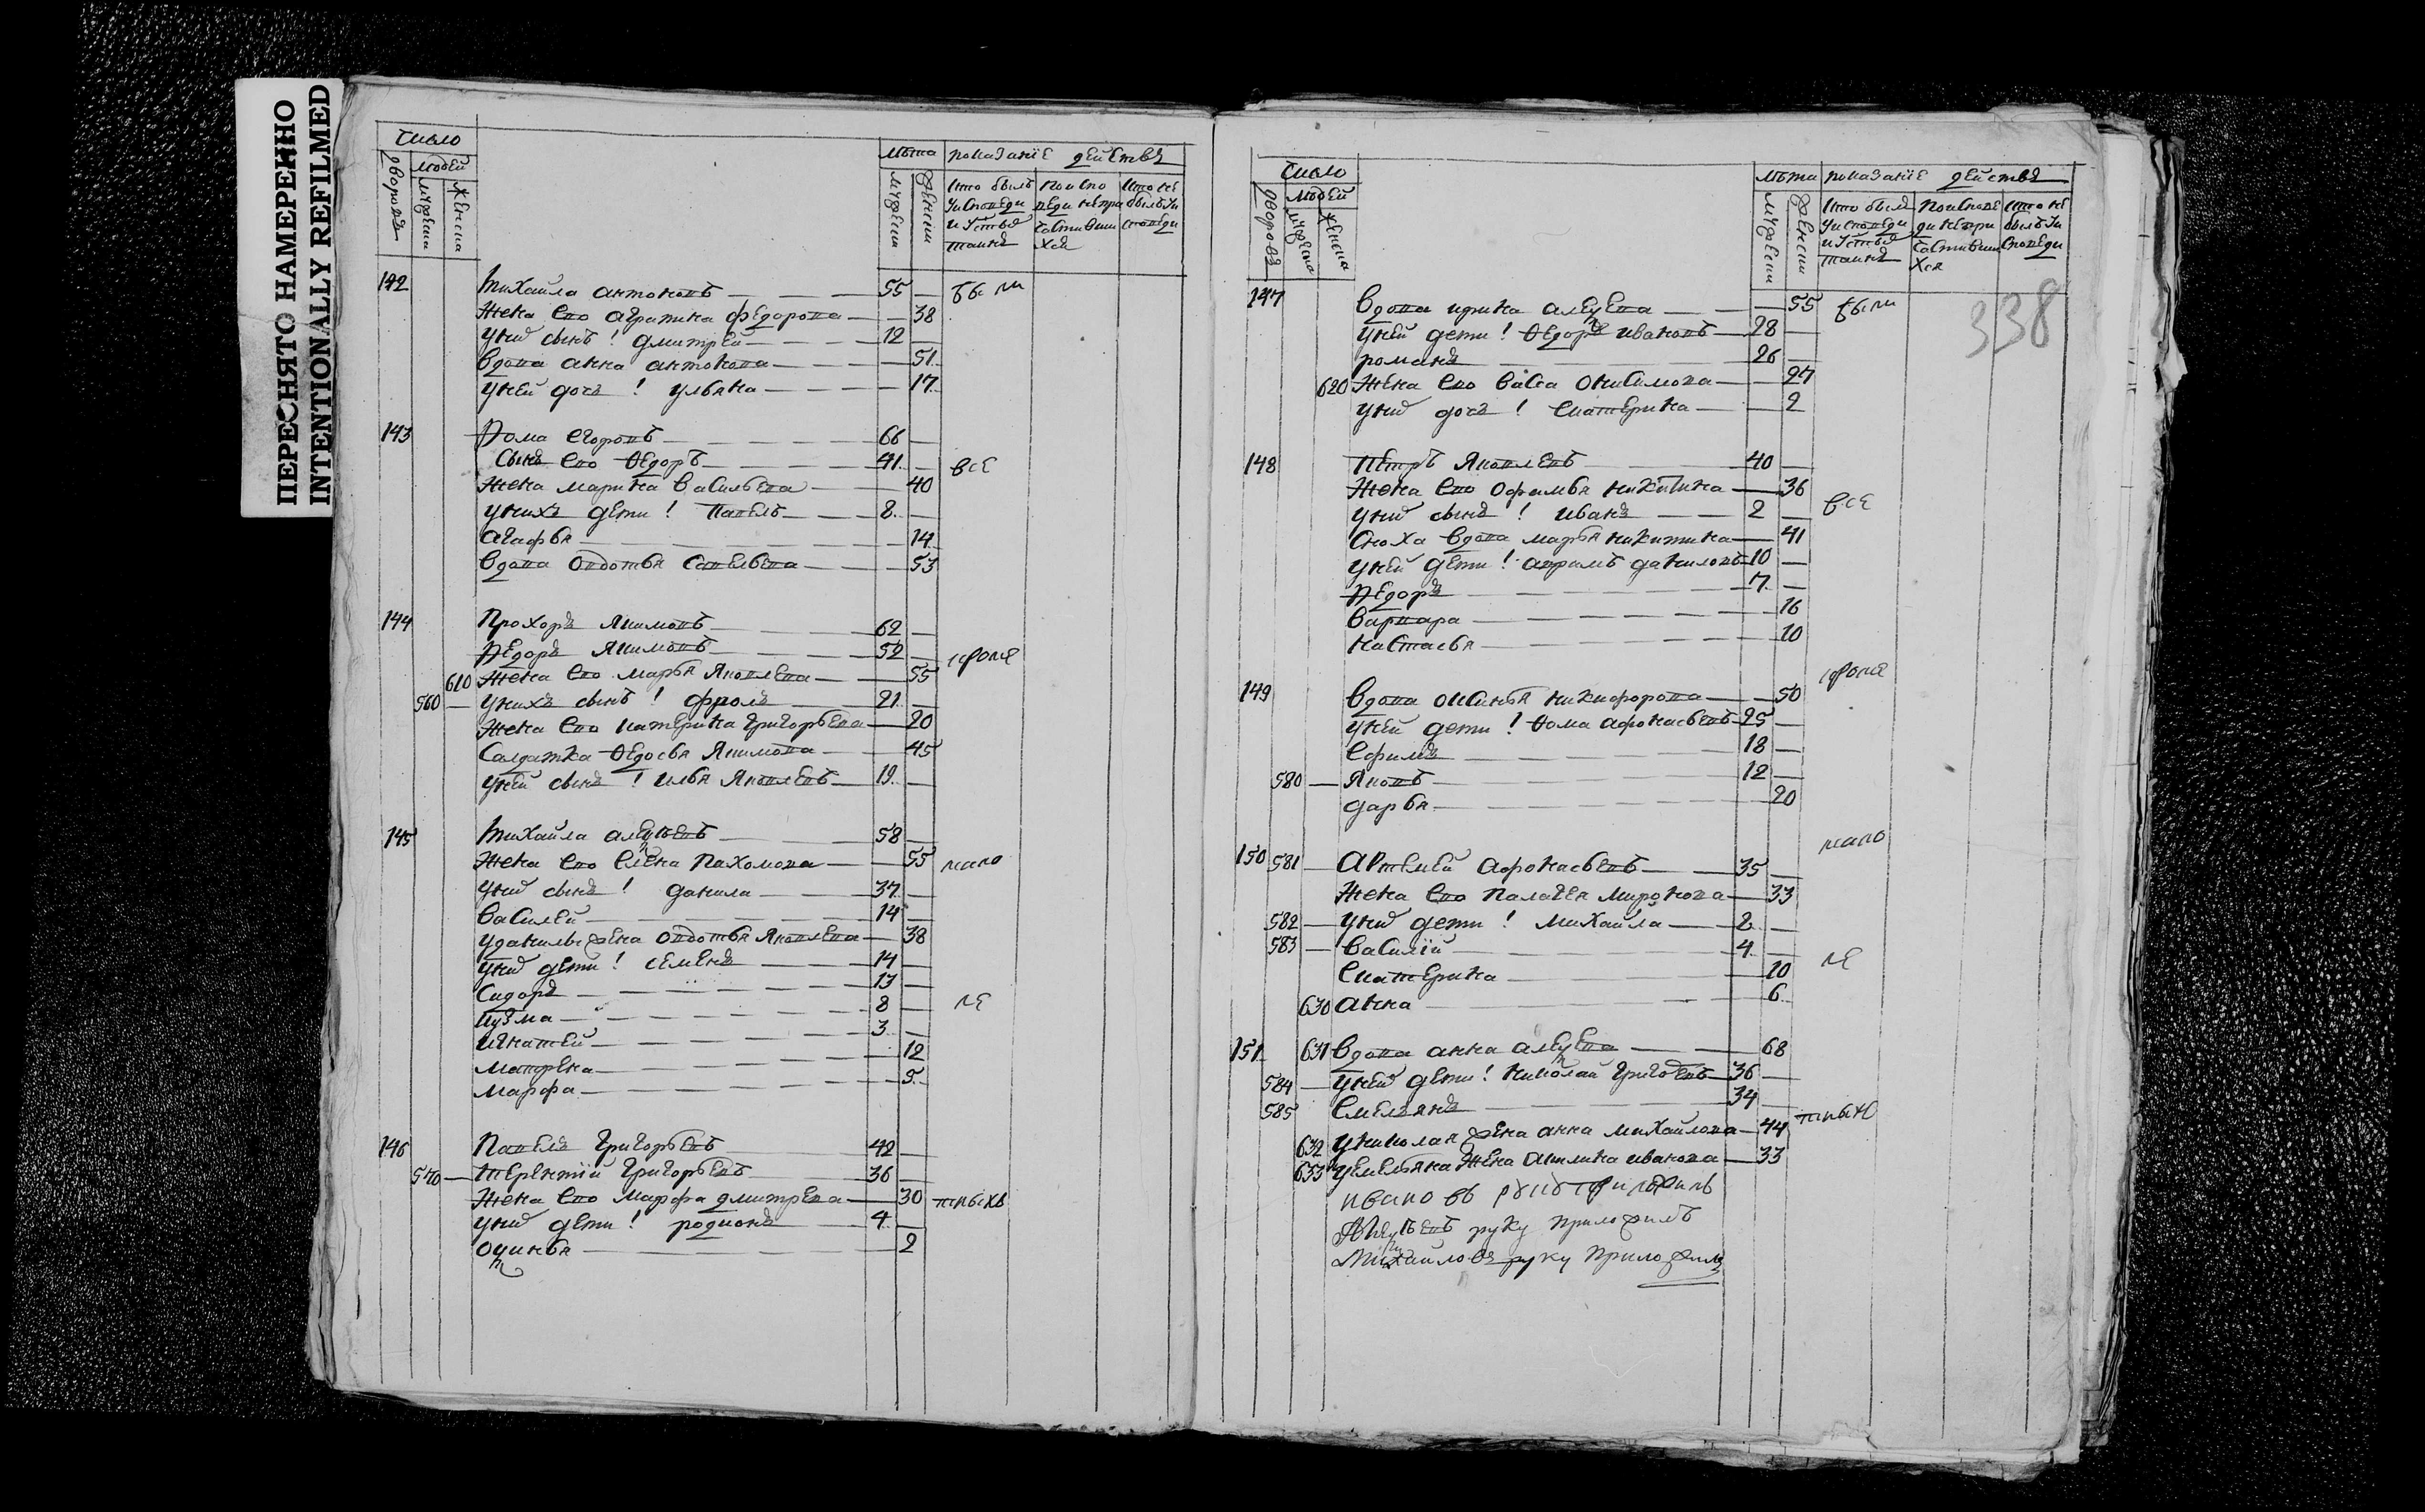 ПЕРЕСНЯТО НАМЕРЕННО
INTENTIONALLY REFILMED
Число
дворовъ
людей
мужеска
женска
лѣта
мужески
женски
показанїе действа
кто былъ у исповеди и у стыхъ таинъ
по исповеди не причастившихся
кто не былъ у исповеди
142 Михайла антоновъ 55 были
жена ево аграпина федорова 38
у нихъ сынъ ! дмитрей 12
вдова анна антонова 51
у ней дочь ! ульяна 17
143 Ѳома егоровъ 66
сынъ ево Ѳедоръ 41 все
жена марина васильева 40
у нихъ дети ! павелъ 8
агафья 14
вдова овдотья савельева 53
144 Прохоръ якимовъ 62
Ѳедоръ якимовъ 52 кроме
610 жена ево марья яковлева 55
560 у нихъ сынъ ! фролъ 21
жена ево катерина григорьева 20
салдатка Ѳедосья якимова 45
у ней сынъ ! илья яковлевъ 19
145 михайла алеѯѣевъ 58
жена ево елена пахомова 55 мало
у нихъ сынъ ! данила 37
василей 14
у данилы жена овдотья яковлева 38
у нихъ дети ! семенъ 14
сидоръ 13
кузма 8 ле
игнатей 3
матрена 12
марфа 5
146 Павелъ григорьевъ 42
570 терентїй григорьевъ 36
жена ево марфа дмитрева 30
у нихъ дети ! родионъ 4
оѯинья 2
Число
дворовъ
людей
мужеска
женска
лѣта
мужески
женски
показанїе действа
кто былъ у исповеди и у стыхъ таинъ
по исповеди не причастившихся
кто не былъ у исповеди
338
147 вдова ирина алеѯеева 55 были
у ней дети ! Ѳедоръ ивановъ 28
романъ 26
620 жена ево васса онисимова 27
у нихъ дочь ! екатерина 2
148 петръ яковлевъ 40
жена ево офимья никитина 36
у нихъ сынъ ! иванъ 2 все
сноха вдова марья никитина 41
у ней дети ! даниловъ 10
Ѳедоръ 7
варвара 16
настасья 10
кроме
149 вдова оксинья никифорова 50
у ней дети ! Ѳома афонасьевъ 25
ефимъ 18
580 яковъ 12
дарья 20
мало
150 581 артемей афонасьевъ 35
жена ево палагея миронова 33
582 у нихъ дети ! михайла 2
583 василїй 4 ле
екатерина 10
630 анна 6
151 631 вдова анна алеѯеева 68
584 у ней дети ! николай григоревъ 36
585 емельянъ 34
632 у николая жена анна михайлова 44
633 у емельяна жена акилина иванова 33
руку приложилъ
руку приложилъ
михайловъ руку приложилъ